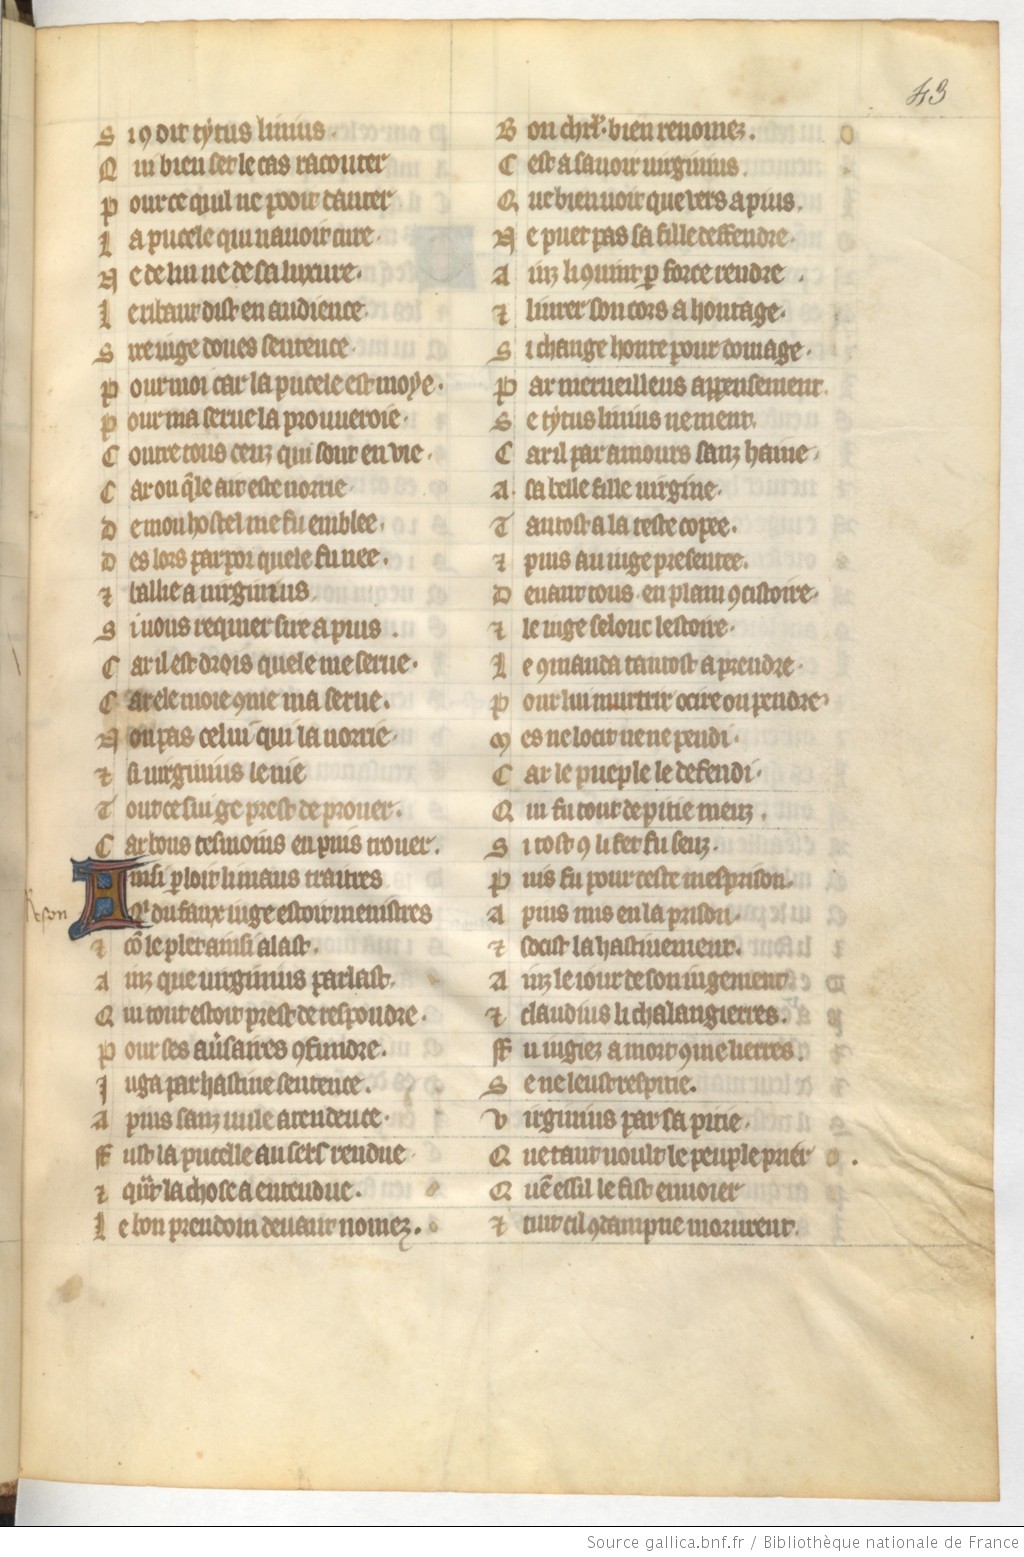 43
S i9 dit tytus liuius.
Q ui bien set le cas raconter
P our ce quil ne pooit danter
L a pucele qui nauoit cure.
N e de lui ne de sa luxure.
L e ribaut dist en audience.
S ire iuge donés sentence.
P our moi car la pucele est moye.
P our ma serue la prouueroie.
C ontre tous ceuz qui sont en vie.
C ar ou q̃le ait este norrie
D e mon hostel me fu emblee.
D es lors par poi quele fu nee.
⁊ baillie a uirginius.
S i uous requier sire apius.
C ar il est drois quele me serue.
C ar ele moie 9me ma serue.
N on pas celui qui la norrie.
⁊ si uirginius le nie
T out ce sui ge prest de prouer.
C ar bons tesmoins en puis trouer.
A insi ꝑloit li maus traitres
Q̃ du faux iuge estoit menistres
⁊ cõ le plet ainsi alast.
A inz que uirginius parlast.
Q ui tout estoit prest de respondre.
P our ses aũsaires 9fundre.
J uga par hastiue sentence.
A pius sanz nule atendence.
ff ust la pucelle au serf rendue
⁊ q̃nt la chose a entendue.
L e bon preudom deuant nomez.
Reson
B on chrl̃r. bien renomez.
C est a sauoir uirginius.
Q ue bien uoit que uers apius.
N e puet pas sa fille deffendre.
A inz li 9uint ꝑ force rendre.
⁊ liurer son cors a hontage.
S i change honte pour domage.
P ar merueilleus appensement.
S e tytus liuius ne ment.
C ar il par amours sanz haine.
A sa belle fille uirgine.
T antost a la teste copee.
⁊ puis au iuge presentee.
D euant tous en plain 9cistoire.
⁊ le iuge selonc lestoire.
L e 9manda tantost a prendre.
P our lui murtrir ocire ou pendre
M es ne locit ne ne pendi.
C ar le pueple le defendi.
Q ui fu tout de pitie meuz.
S i tost 9 li fet fu seuz.
P uis fu pour ceste mesprison.
A pius mis en la prison.
⁊ socist la hastiuement.
A inz le iour de son iugement.
⁊ claudius li chalangierres.
ff u iugiez a mort 9me lierres.
S e ne leust respitie.
V irginius par sa pitie.
Q ue tant uoult le peuple prier.
Q uẽ essil le fist enuoier
⁊ tuit cil 9dampne morurent.
Source gallica.bnf.fr / Bibliothèque nationale de France